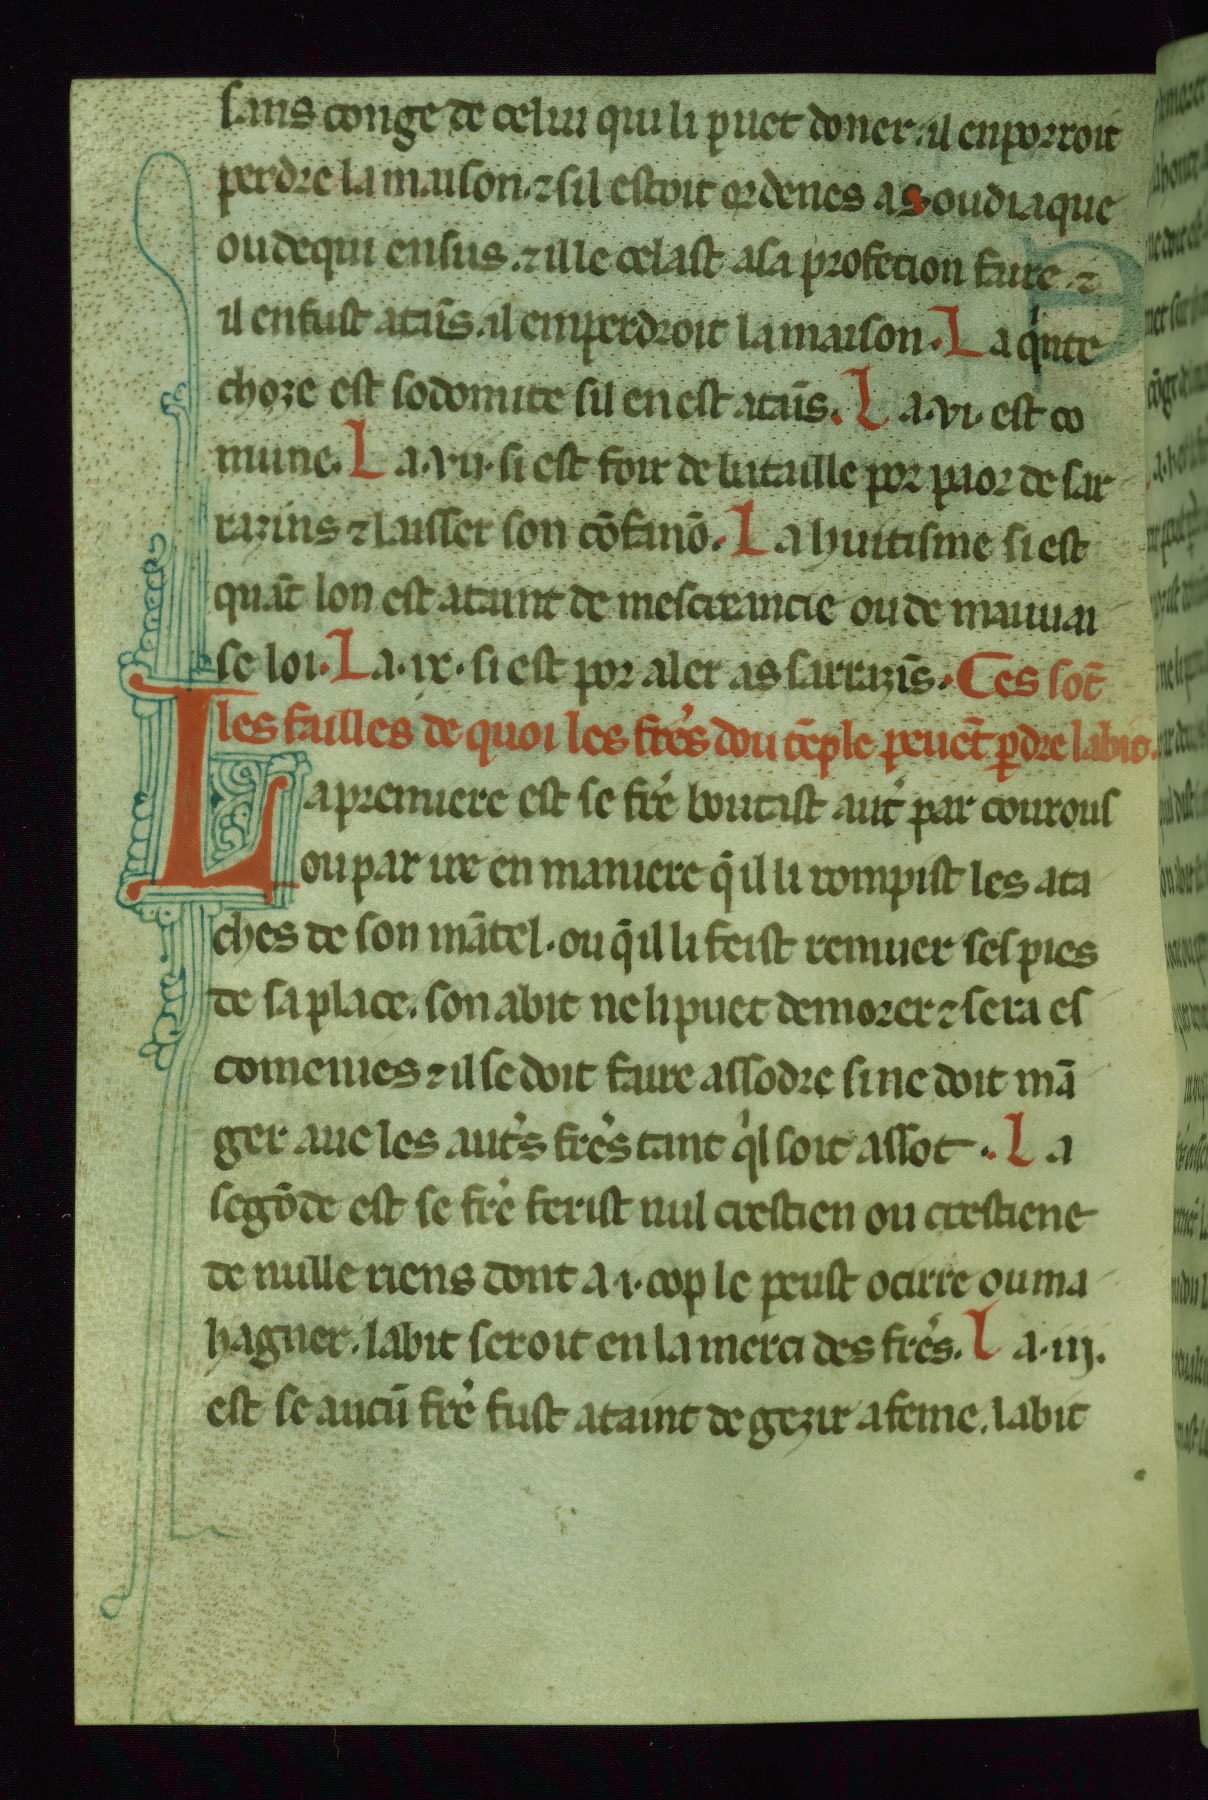 sans conge de celui qui li puet doner. il en porroit
perdre la maison. ⁊ sil estoit ordenes a soudiaque
ou dequi en sus. ⁊ il le celast a sa profecion faire. ⁊
il en fust atai̅s. il em perdroit la maison. La qͥnte
choze est sodomite sil en est atai̅s. La .vi. est co
mune. La .vii. si est foir de bataille por paor de sar
razins ⁊ laisser son co̅fano̅. La huitisme si est
qua̅t lon est ataint de mescreancie ou de mauvai
se loi. La .ix. si est por aler as sarrazi̅s. Ces so̅t
les failles de quoi les fre̓s dou te̅ple peue̅t ꝑdre labit.
La premiere est se fre̓ boutast aut̓ par courous
ou par ire en maniere q̃ il li rompist les ata
ches de son ma̅tel. ou q̃ il li feist remuer ses pies
de sa place. son abit ne li puet demorer ⁊ sera es
comenies ⁊ il se doit faire assodre si ne doit ma̅
ger ave les aut̓s fre̓s tant qͥl soit assot. La
sego̅de est se fre̓ ferist nul crestien ou crestiene
de nulle riens dont a .i. cop le peust ocirre ou ma
hagner. labit seroit en la merci des fre̓s. La .iij.
est se aucu̅ fre̓ fust ataint de gezir a feme. labit